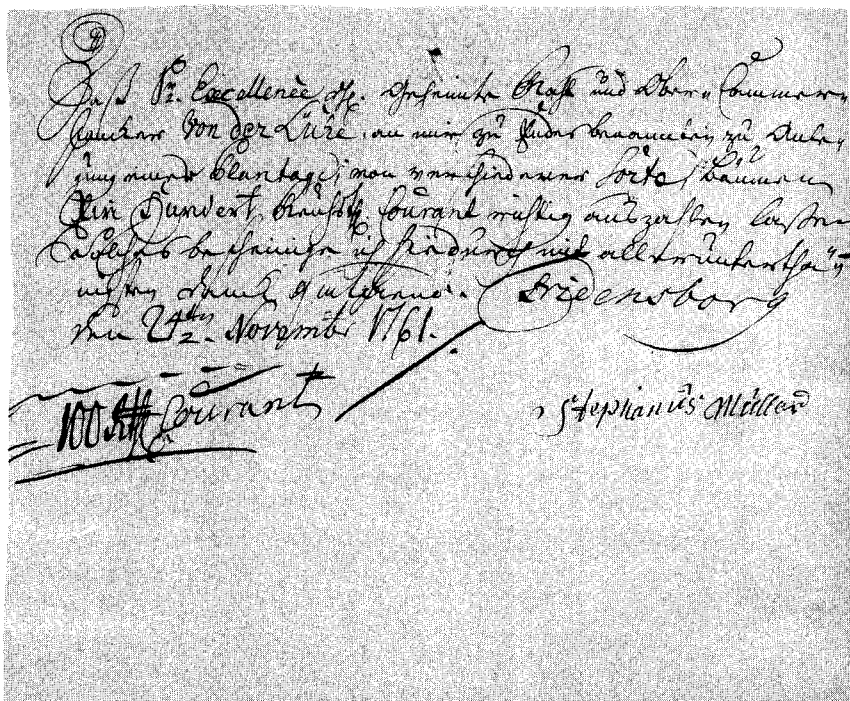 Daß Sr. Excellence H. Geheimte Raht und Ober Cammer-
Juncker Von der Lühe, an mir zu Endes benannten zu Anle-
gung einer Plantage, von verschiedener Sorte Bäumen
Ein Hundert Reichsth. Courant richtig auszahlen laßen
Solches bescheinige ich hiedurch mit allerunterthä-
nigsten Danck. Fridensborg
den 24ten November 1761.
100 Rth Courant
Stephanus Müller